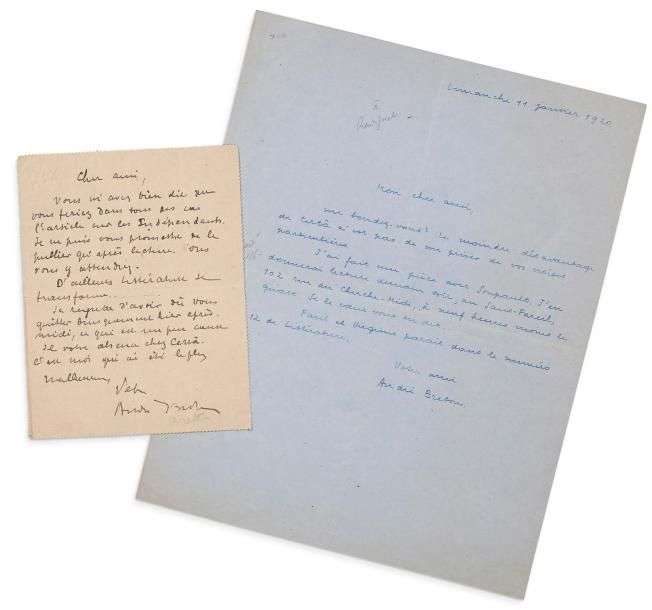 Cher ami,
Vous m'avez bien dit que
vous feriez dans tous les cas
l'article sur les Indépendants.
Je ne puis vous promettre de le
publier qu'après lecture. Vous
vous y attendez.
D'ailleurs Littérature se
transforme.
Je regrette d'avoir dû vous
quitter brusquement hier après-
midi, ce qui est un peu cause
de votre absence chez Certâ.
C'est moi qui ai été le plus
malheureux
Votre
André Breton
dimanche 11 janvier 1920
à
Mon cher ami,
me boudez-vous? Le moindre désavantage
de Certâ n'est pas de me priver de vos
J'ai fait une pièce avec Soupault. J'en
donnerai lecture demain soir, au Sans-Pareil,
102 rue du Cherche-Midi, à neuf heures moins le
quart. Je le dis.
Paul et Virginie paraît dans le numéro
12 de Littérature.
Votre ami
André Breton.